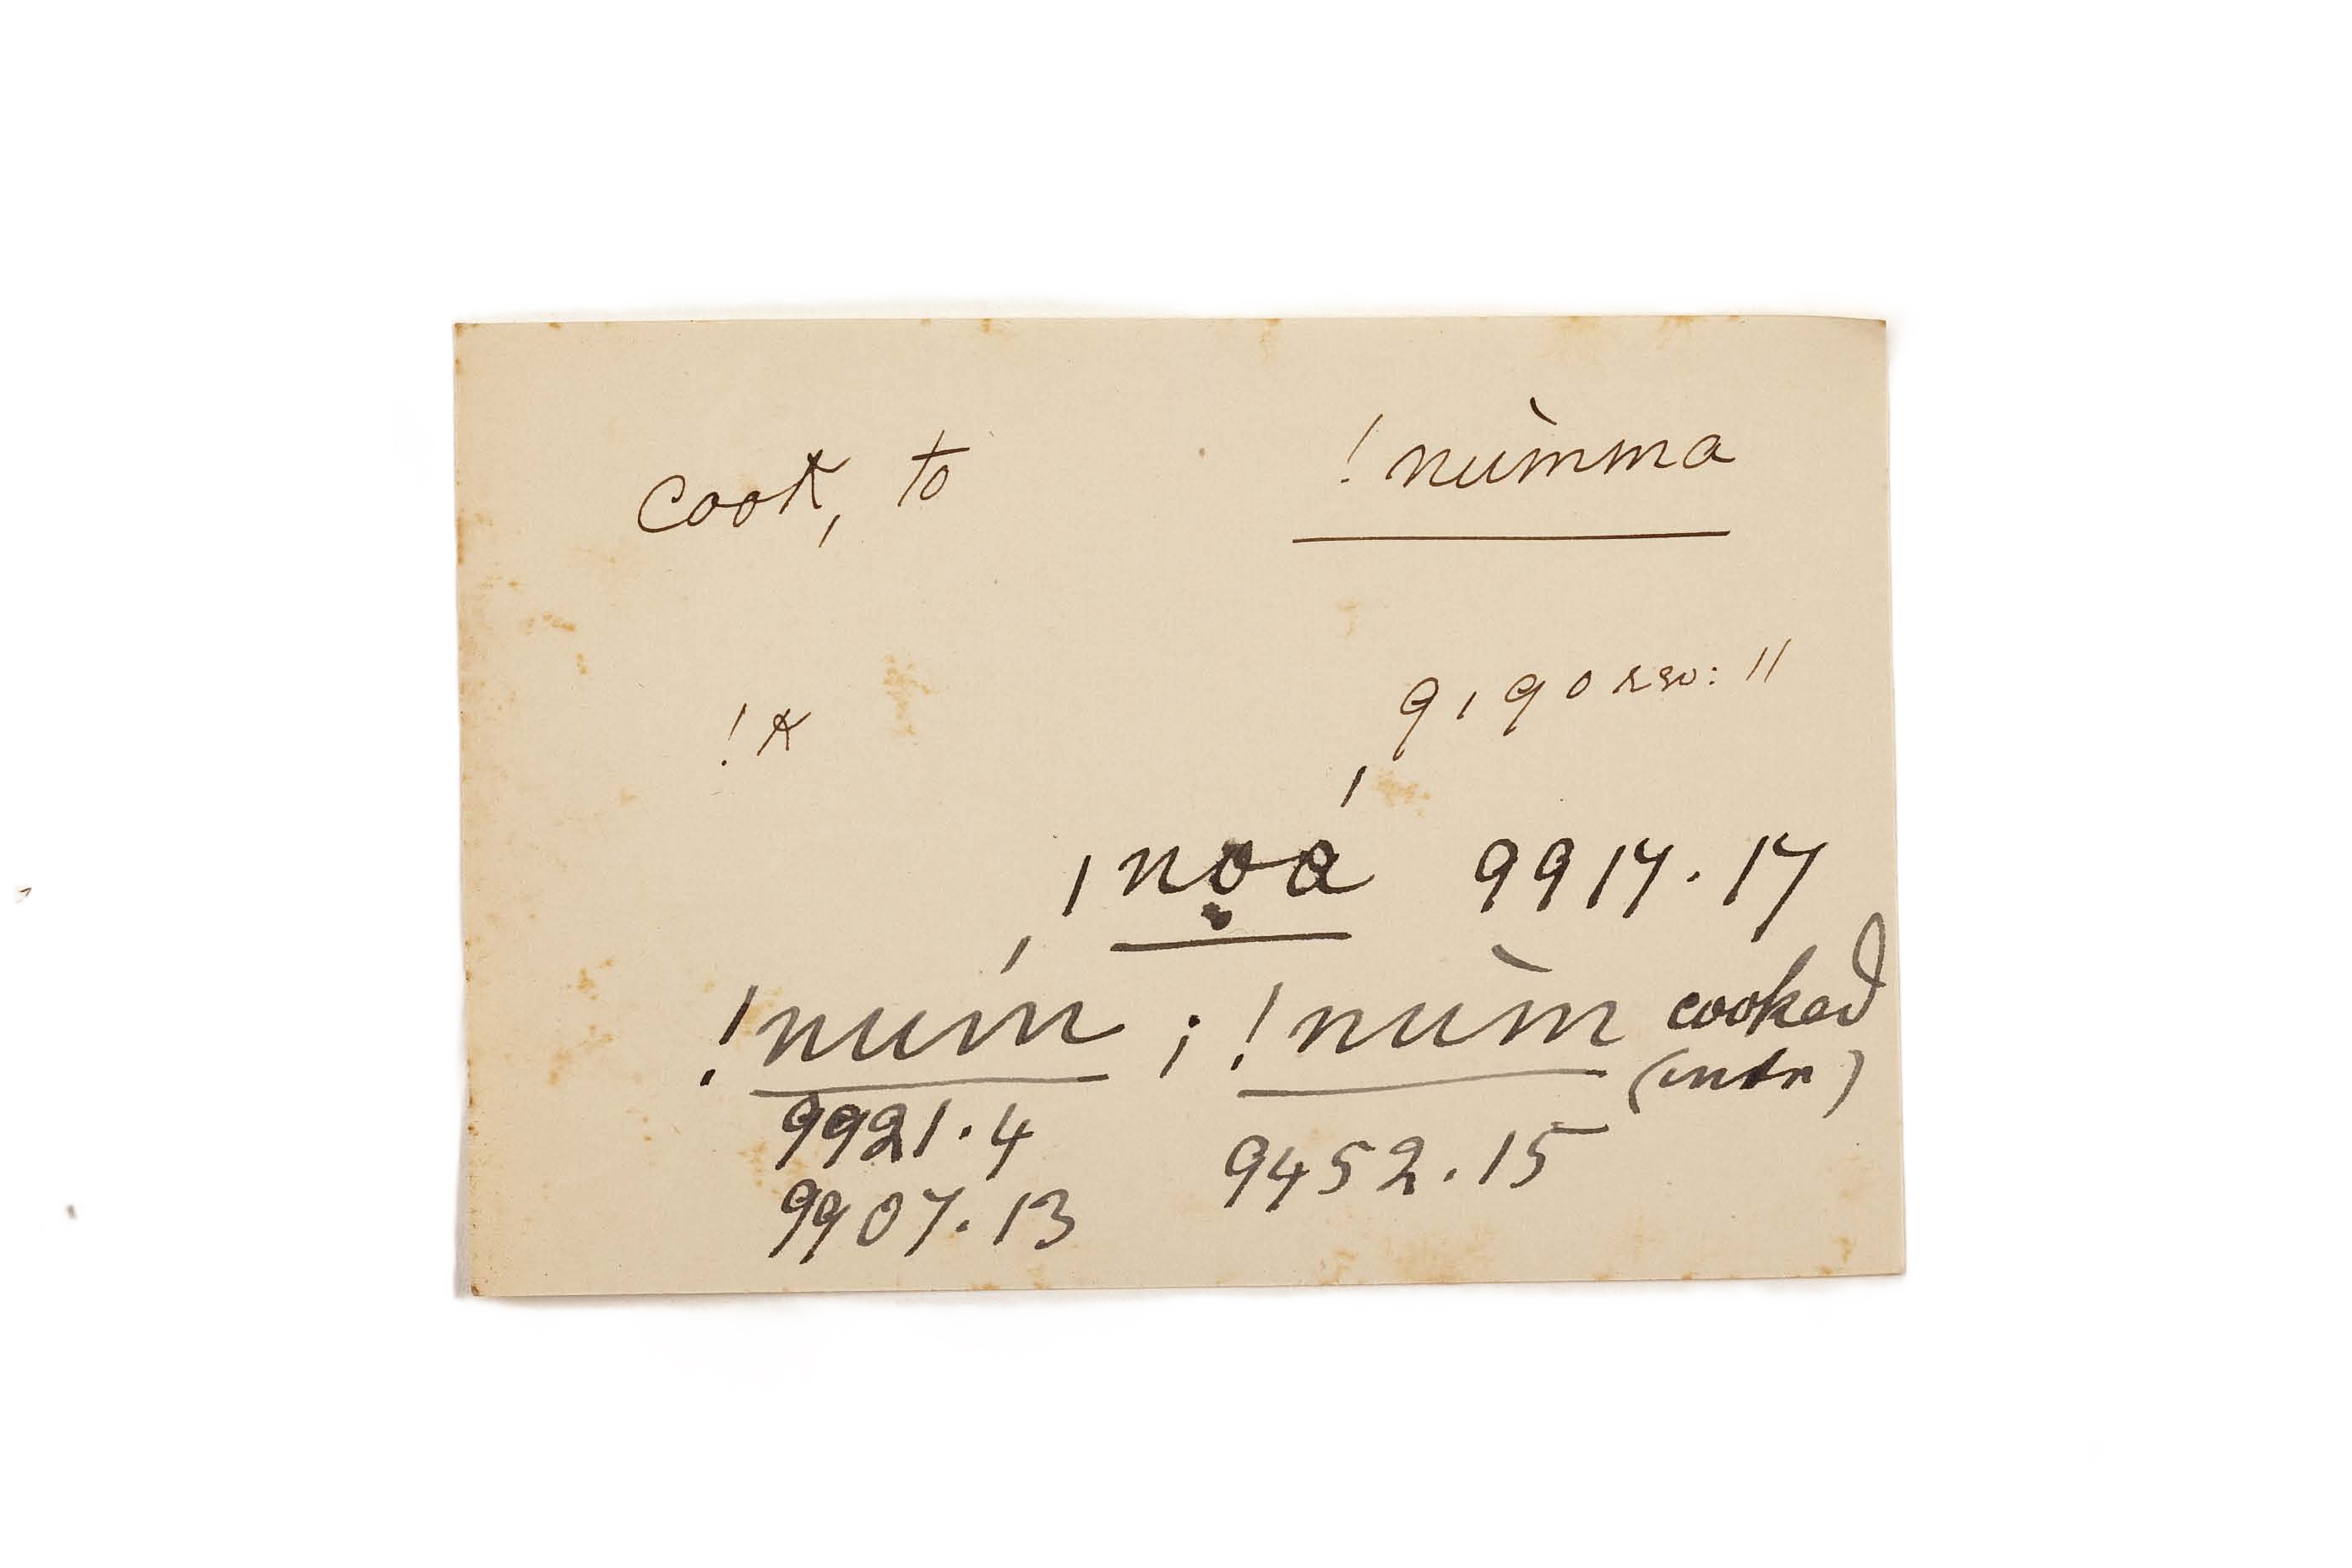 cook, to !nùmma
!k 9,90 rev: 11
ˌnọá 9917.17
!núm ; !nùm cooked
(intr)
9921.4 9452.15
9907.13